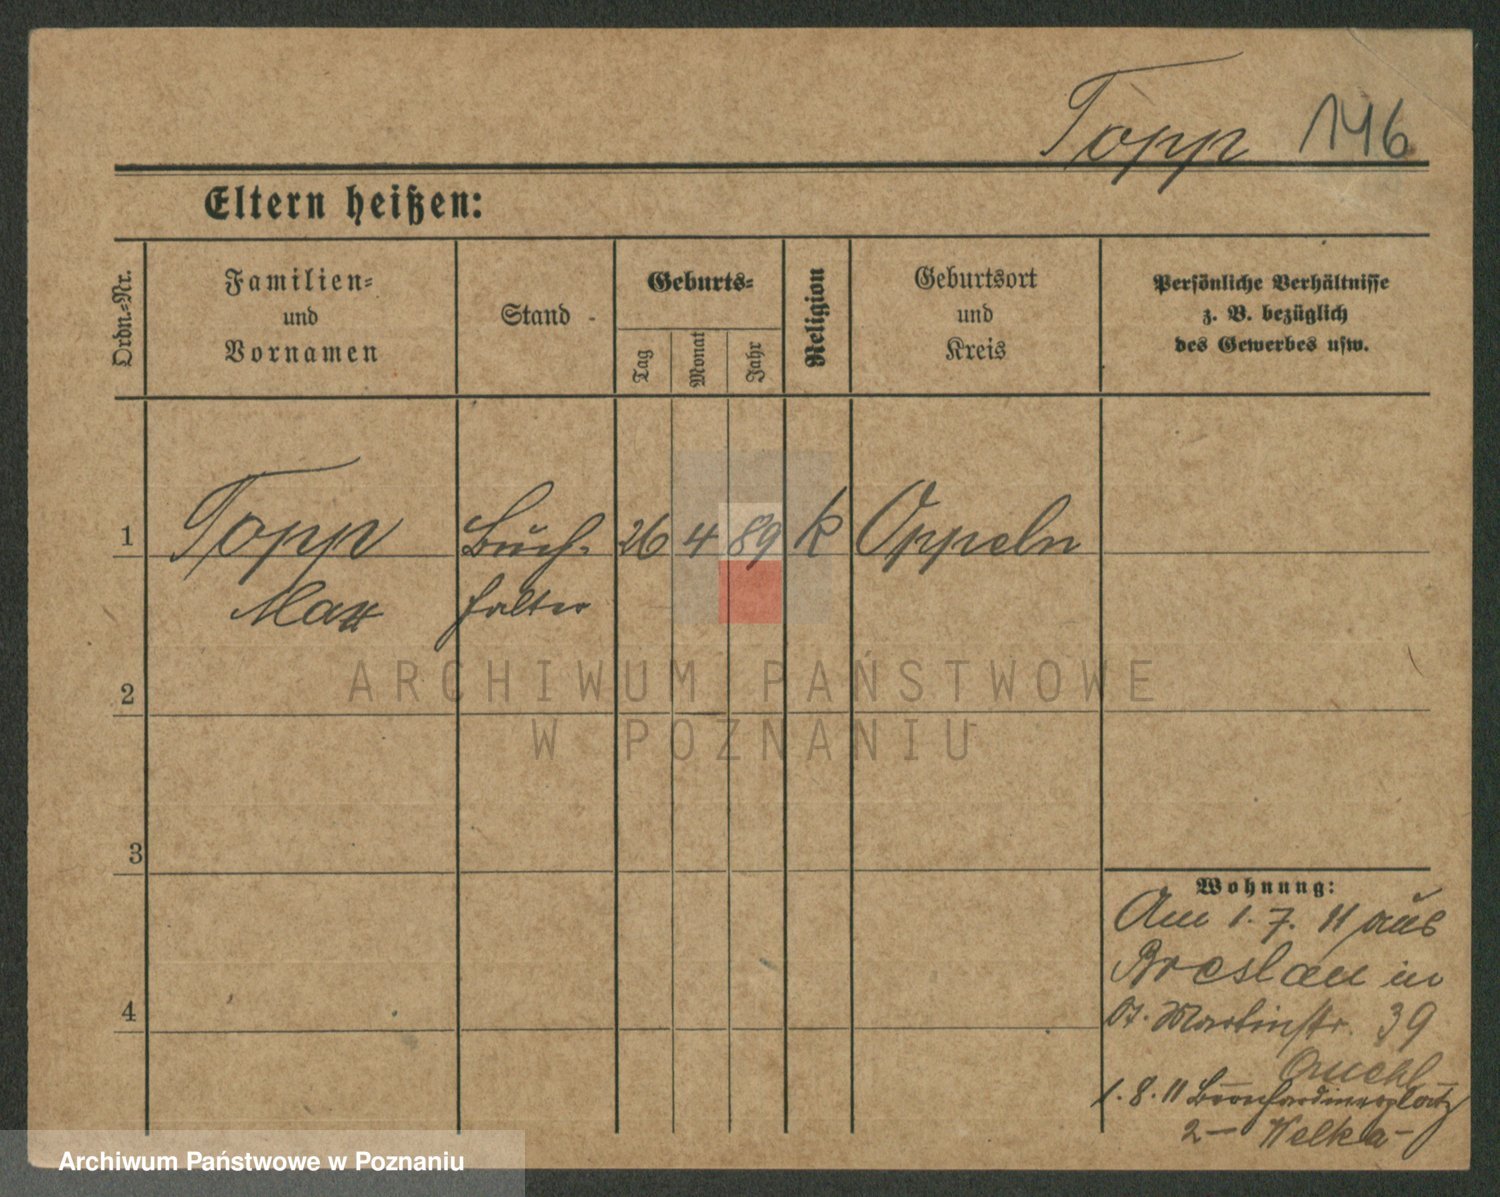 Topp 146
Eltern heißen:
Ordn.-Nr.
Familien-
und
Vornamen
Stand
Geburts-
Tag
Monat
Jahr
Religion
Geburtsort
und
Kreis
Persönliche Verhältnisse
z. B. bezüglich
des Gewerbes usw.
1 Topp Buch- 26 4 89 k Oppeln
Max halter
2
3
4
Wohnung:
Am 1. 7. 11 aus
Breslau in
St. Martinstr. 39
1. 8. 11 Bernhardinerplatz
2 - Welka -
ARCHIWUM PAŃSTWOWE
W POZNANIU
Archiwum Państwowe w Poznaniu